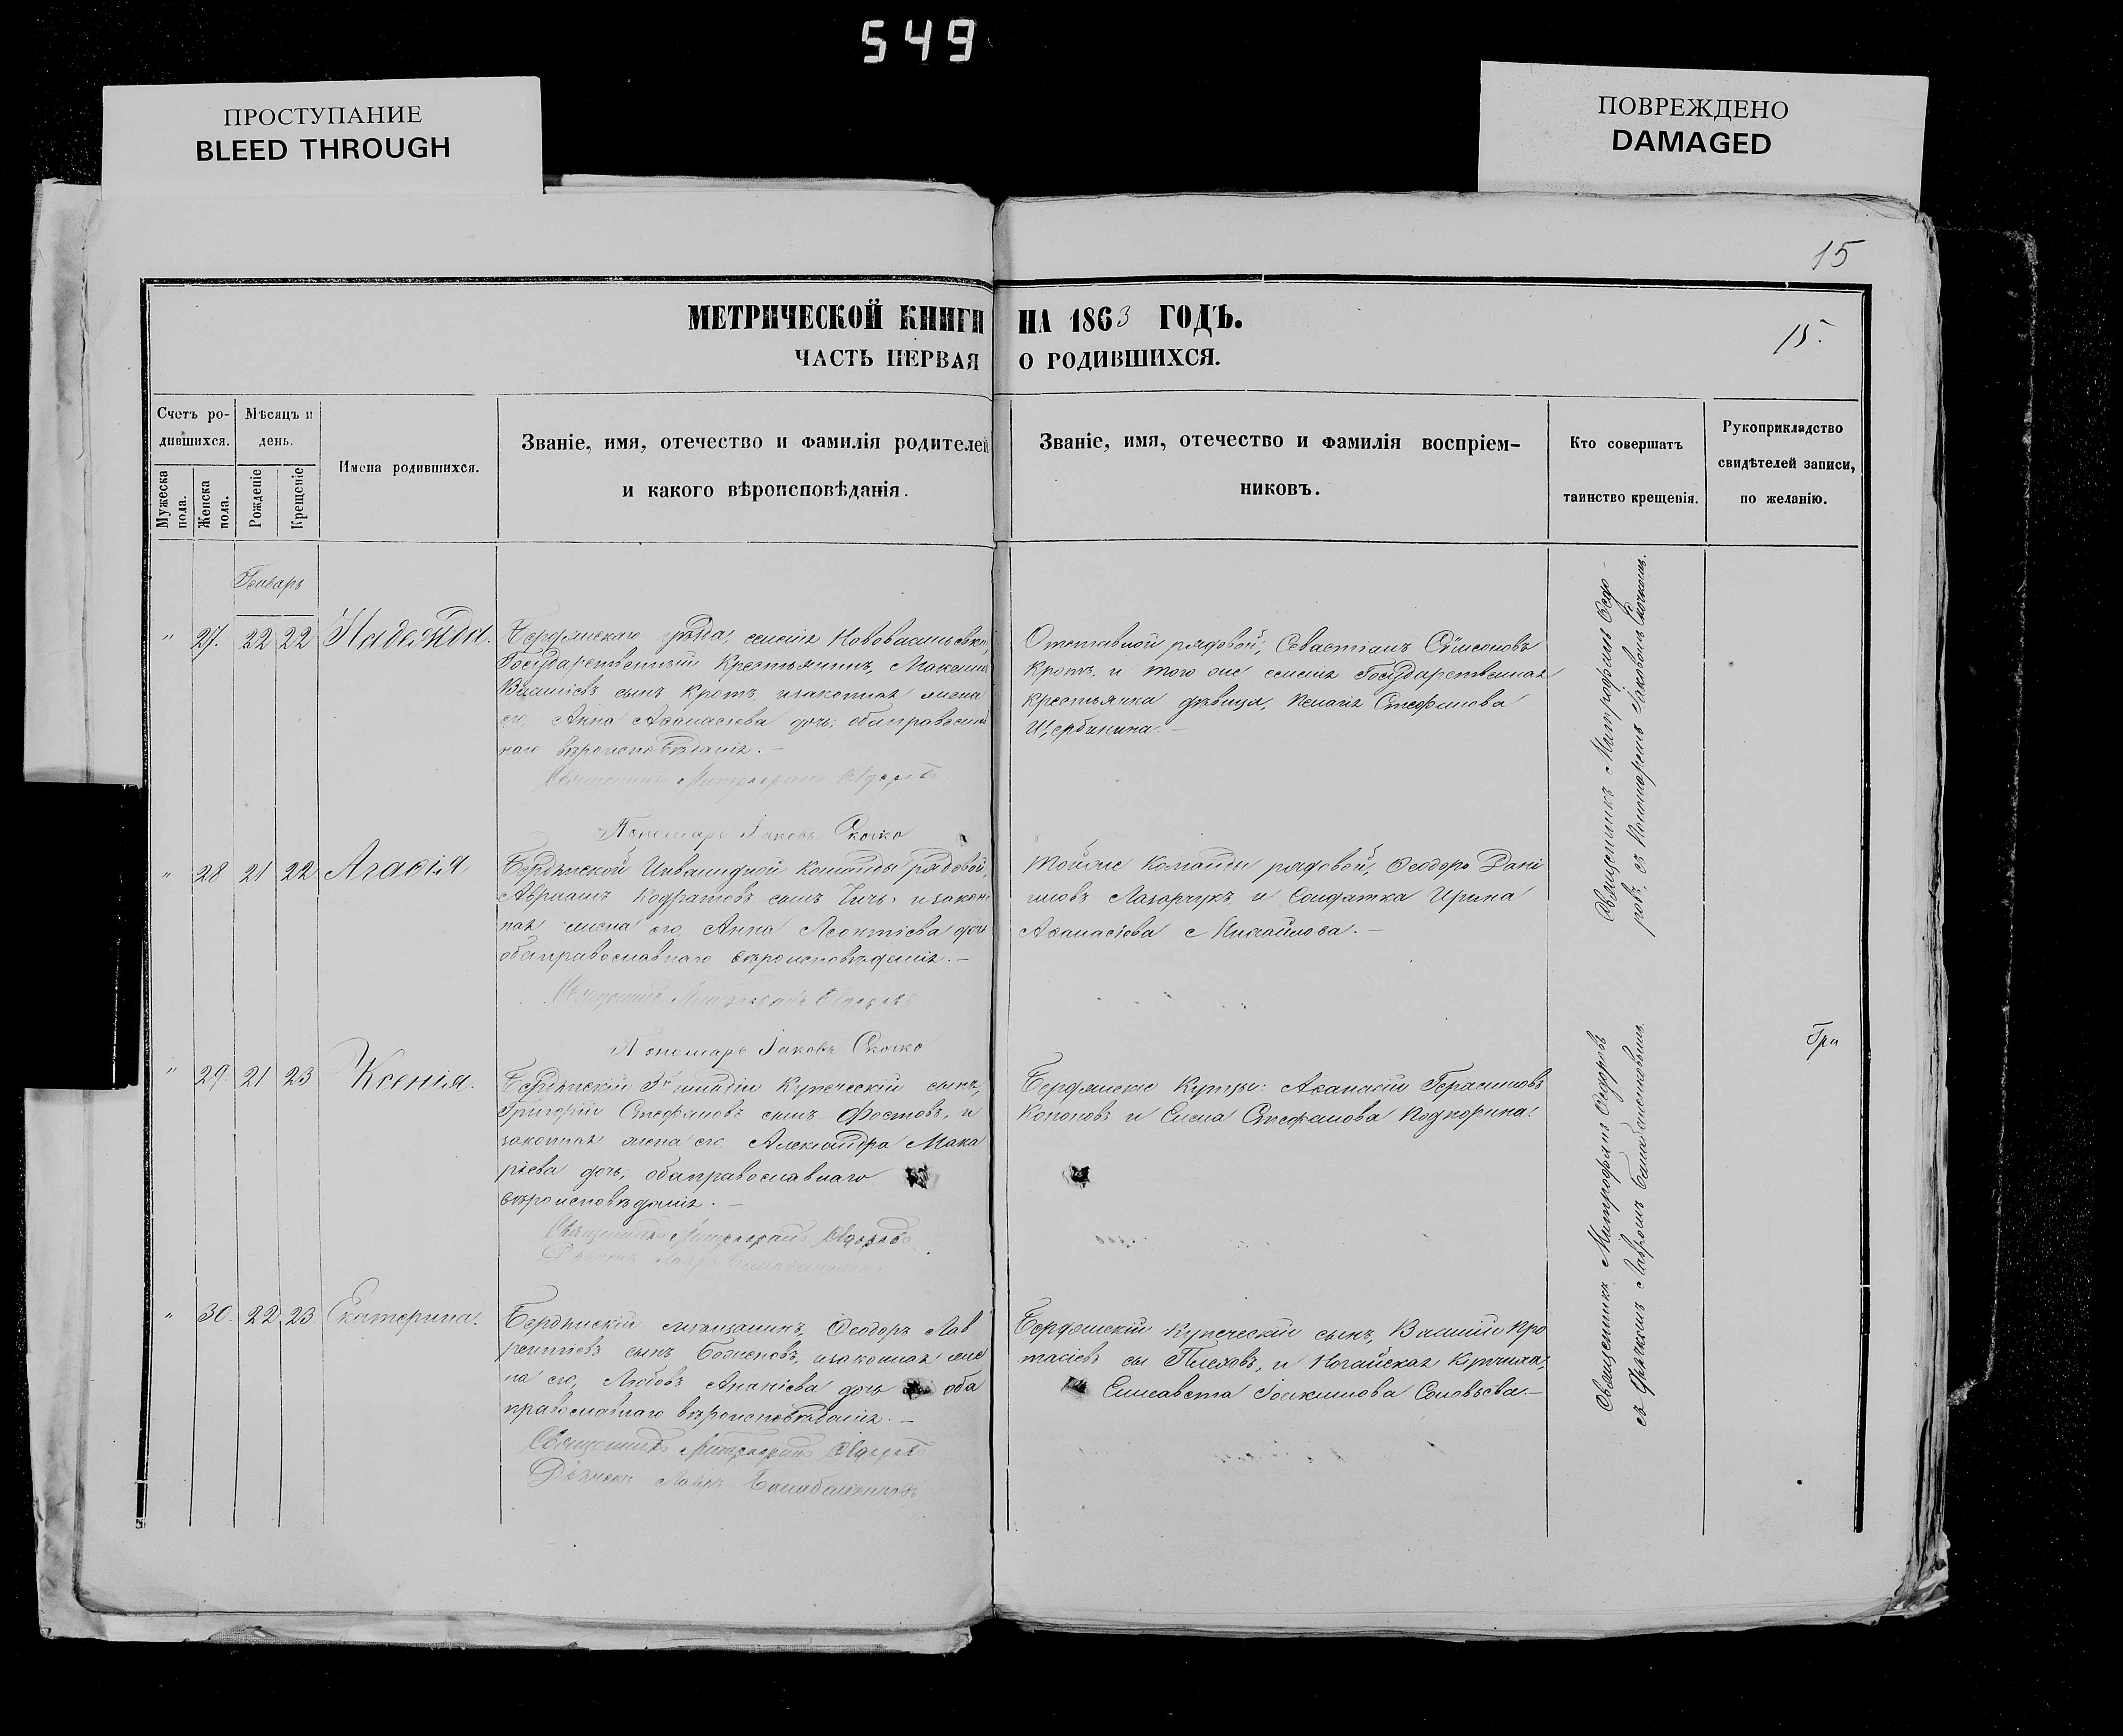 549
ПРОСТУПАНИЕ
BLEED THROUGH
ПОВРЕЖДЕНО
DAMAGED
15
МЕТРИЧЕСКОЙ КНИГИ НА 1863 ГОДЪ.
15.
ЧАСТЬ ПЕРВАЯ О РОДИВШИХСЯ.
Счетъ ро-
дившихся.
Мужеска
пола.
Женска
пола.
Мѣсяцъ и
день.
Рожденіе
Крещеніе
Имена родившихся.
Званіе, имя, отечество и фамилія родителей
и какого вѣроисповѣданія.
Званіе, имя, отечество и фамилія воспріем-
никовъ.
Кто совершатъ
таинство крещенія.
Рукоприкладство
свидѣтелей записи,
по желанію.
Генварь
" 27. 22 22 Надежда.
Бердянскаго уѣзда, селенія
Государственный Крестьянинъ,
сынъ Кротъ, и законная жена
его, Анна Аѳанасіева дочь; оба православ
наго вѣроисповѣданія. —
Священникъ Митрофанъ
Пономарь Іаковъ Скочко
Отставной рядовой, Севастіанъ Сѵмеоновъ
Кротъ, и того же селенія Государственная
крестьянка дѣвица, Пелагія Стефанова
Щербинина. —
Священникъ Митрофанъ Ѳедо-
ровъ, съ Пономаремъ Іаковомъ Скочкомъ.
" 28 21 22 Агаѳія
Бердянской Инвалидной Команды рядовой,
Авраамъ сынъ и закон
ная жена его, Анна Леонтіева дочь
оба православнаго вѣроисповѣданія. —
Священникъ Митрофанъ
Пономарь Іаковъ Скочко
Той же Команды рядовой, Ѳеодоръ Дани
иловъ Лазарчукъ, и Солдатка Ирина
Аѳанасіева Михайлова. —
" 29. 21 23 Ксенія.
Бердянскій гильдіи Купеческій сынъ,
Григорій Стефановъ сынъ Фостовъ, и
законная жена его, Александра Мака
ріева дочь; оба православнаго
вѣроисповѣданія. —
Священникъ Митрофанъ
Бердянскіе Купцы: Аѳанасій Герасимовъ
Кононовъ и Елена Стефанова
Гра
Священникъ Митрофанъ Ѳедоровъ
съ Дьячкомъ Лавромъ
" 30. 22 23 Екатерина.
Бердянскій мѣщанинъ, Ѳеодоръ Лав
рентіевъ сынъ и законная же
на его, Любовь Ананіева дочь оба
православнаго вѣроисповѣданія. —
Священникъ Митрофанъ
Дьячекъ Лавръ
Бердянскій Купеческій сынъ, Василій Про
тасіевъ и Ногайская Купчиха,
Елисавета Іоакимова Соловьева. —